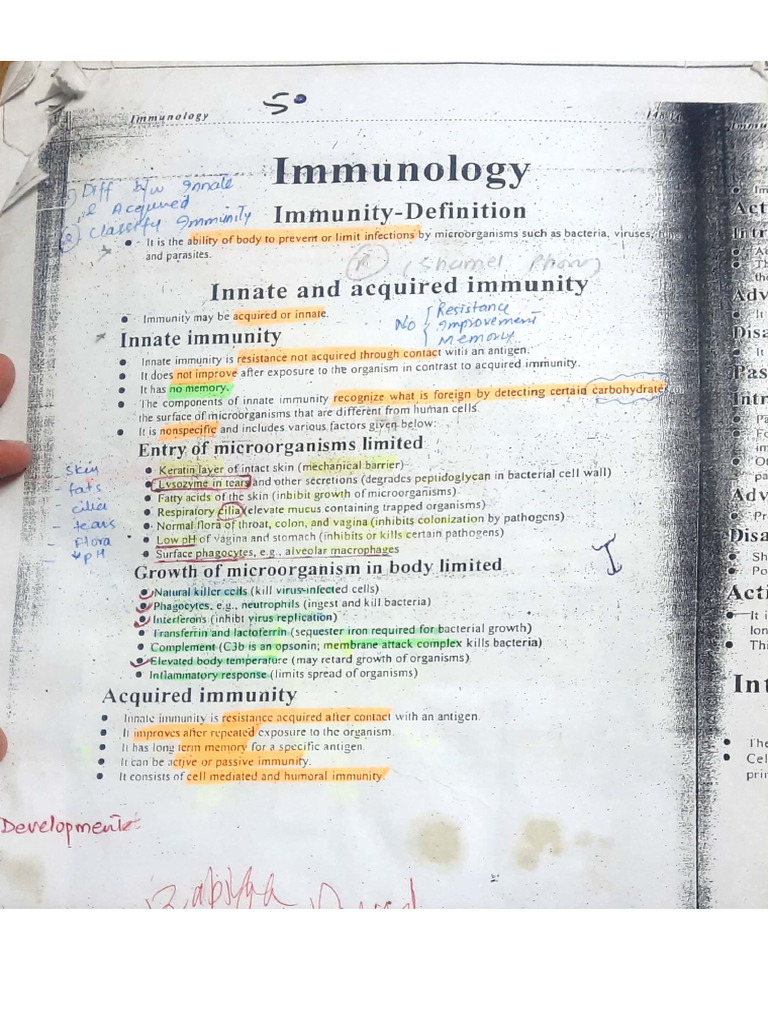 Immunology
5
Immunology
1) Diff b/w Innate
& Acquired
2) Classify Imminity
Immunity-Definition
• It is the ability of body to prevent or limit infections by microorganisms such as bacteria, viruses,
and parasites.
Innate and acquired immunity
• Immunity may be acquired or innate.
No { Resistance
Improvement
Memory
Innate immunity
• Innate immunity is resistance not acquired through contact with an antigen.
• It does not improve after exposure to the organism in contrast to acquired immunity.
• It has no memory.
• The components of innate immunity recognize what is foreign by detecting certain carbohydrate
the surface of microorganisms that are different from human cells.
• It is nonspecific and includes various factors given below:
Entry of microorganisms limited
- skin
- fats
- cilia
- tears
- Flora
- ↓pH
• Keratin layer of intact skin (mechanical barrier)
• Lysozyme in tears and other secretions (degrades peptidoglycan in bacterial cell wall)
• Fatty acids of the skin (inhibit growth of microorganisms)
• Respiratory cilia (elevate mucus containing trapped organisms)
• Normal flora of throat, colon, and vagina (inhibits colonization by pathogens)
• Low pH of vagina and stomach (inhibits or kills certain pathogens)
• Surface phagocytes, e.g., alveolar macrophages
Growth of microorganism in body limited
• Natural killer cells (kill virus-infected cells)
• Phagocytes, e.g., neutrophils (ingest and kill bacteria)
• Interferons (inhibit virus replication)
• Transferrin and lactoferrin (sequester iron required for bacterial growth)
• Complement (C3b is an opsonin; membrane attack complex kills bacteria)
• Elevated body temperature (may retard growth of organisms)
• Inflammatory response (limits spread of organisms)
Acquired immunity
• Innate immunity is resistance acquired after contact with an antigen.
• It improves after repeated exposure to the organism.
• It has long term memory for a specific antigen.
• It can be active or passive immunity.
• It consists of cell mediated and humoral immunity.
Development